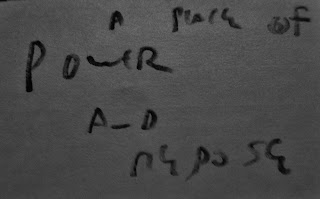 A PLACE of
POWER
AND
REPOSE